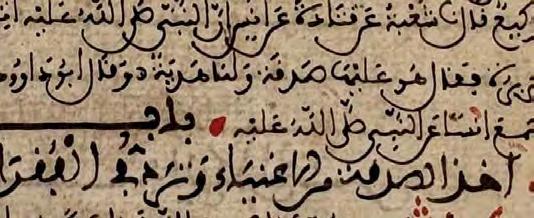 وكيع قال نا شعبة عن قتادة عن انس ان النبي صلى الله عليه
فقال هو عليها صدقة ولنا هدية وقال ابو داوود
سمع انسا عن النبي صلى الله عليه باب
اخذ الصدقة من الاغنياء وترد في الفقرا